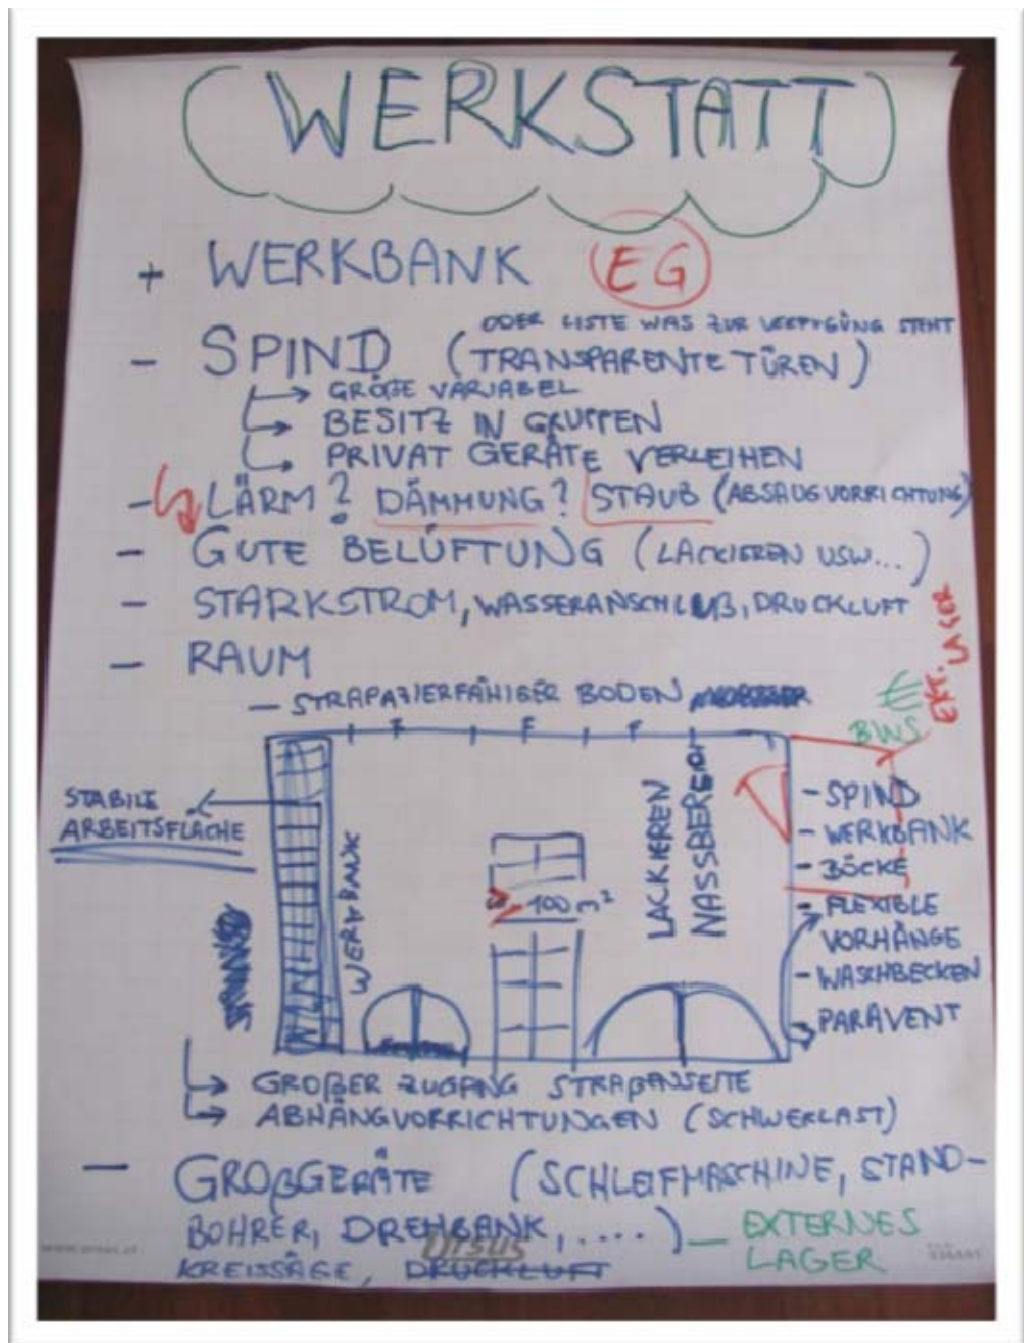 WERKSTATT
+ WERKBANK EG
ODER LISTE WAS ZUR VERFÜGUNG STEHT
- SPIND (TRANSPARENTE TÜREN)
→ GRÖßE VARIABEL
→ BESITZ IN GRUPPEN
→ PRIVAT GERÄTE VERLEIHEN
- LÄRM? DÄMMUNG? STAUB (ABSAUGVORRICHTUNG)
- GUTE BELÜFTUNG (LACKIEREN USW...)
- STARKSTROM, WASSERANSCHLUß, DRUCKLUFT
- RAUM
- STRAPAZIERFÄHIGER BODEN
EXT. LAGER
€
BWS
STABILE
ARBEITSFLÄCHE
WERKBANK
100 m²
LACKIEREN
NASSBEREICH
- SPIND
- WERKBANK
- BÖCKE
- FLEXIBLE
VORHÄNGE
- WASCHBECKEN
PARAVENT
→ GROßER ZUGANG STRAßENSEITE
→ ABHÄNGVORRICHTUNGEN (SCHWERLAST)
- GROßGERÄTE (SCHLEIFMASCHINE, STAND-
BOHRER, DREHBANK, .....) — EXTERNES
LAGER
KREISSÄGE, DRUCKLUFT
Ursus